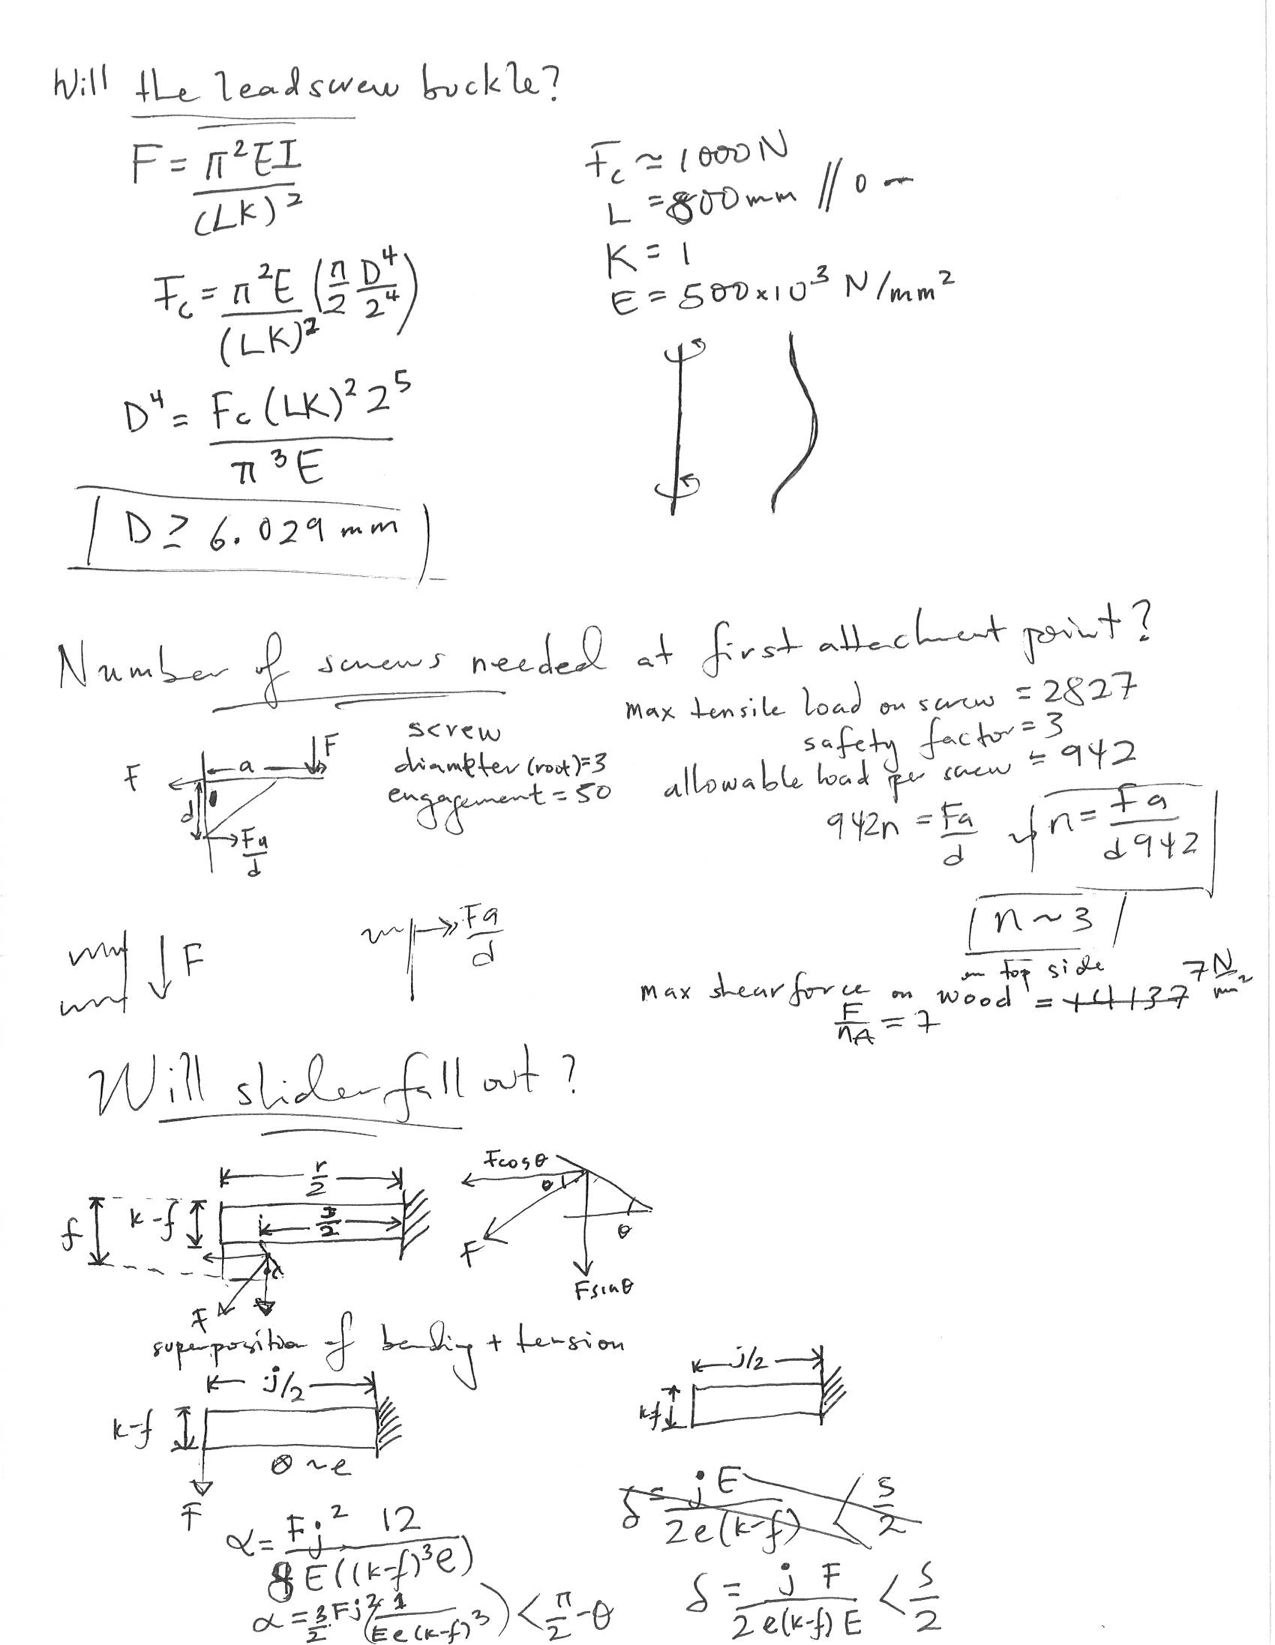 Will the leadscrew buckle?
F = π²EI / (LK)²
F_c = π²E / (LK)² (π/2 D⁴/2⁴)
D⁴ = F_c (LK)² 2⁵ / π³E
D ≥ 6.029 mm
F_c ≈ 1000N
L = 800mm // 0 —
K = 1
E = 500×10³ N/mm²
Number of screws needed at first attachment point?
F
a
F
d
Fa/d
screw
diameter (root)=3
engagement = 50
max tensile load on screw = 2827
safety factor = 3
allowable load per screw = 942
942n = Fa/d
n = Fa / d942
n ~ 3
on top side
F
Fa/d
max shear force on wood = 14137 7 N/mm²
F/nA = 7
Will slider fall out?
r/2
f
k-f
j/2
F
Fcosθ
θ
F
θ
Fsinθ
superposition of bending + tension
j/2
k-f
⊗ ~ e
F
j/2
k-f
α = Fj² 12 / 8E((k-f)³e)
α = 3/2 Fj² (1 / Ee(k-f)³) < π/2 - θ
δ = jE / 2e(k-f) < s/2
δ = jF / 2e(k-f)E < s/2